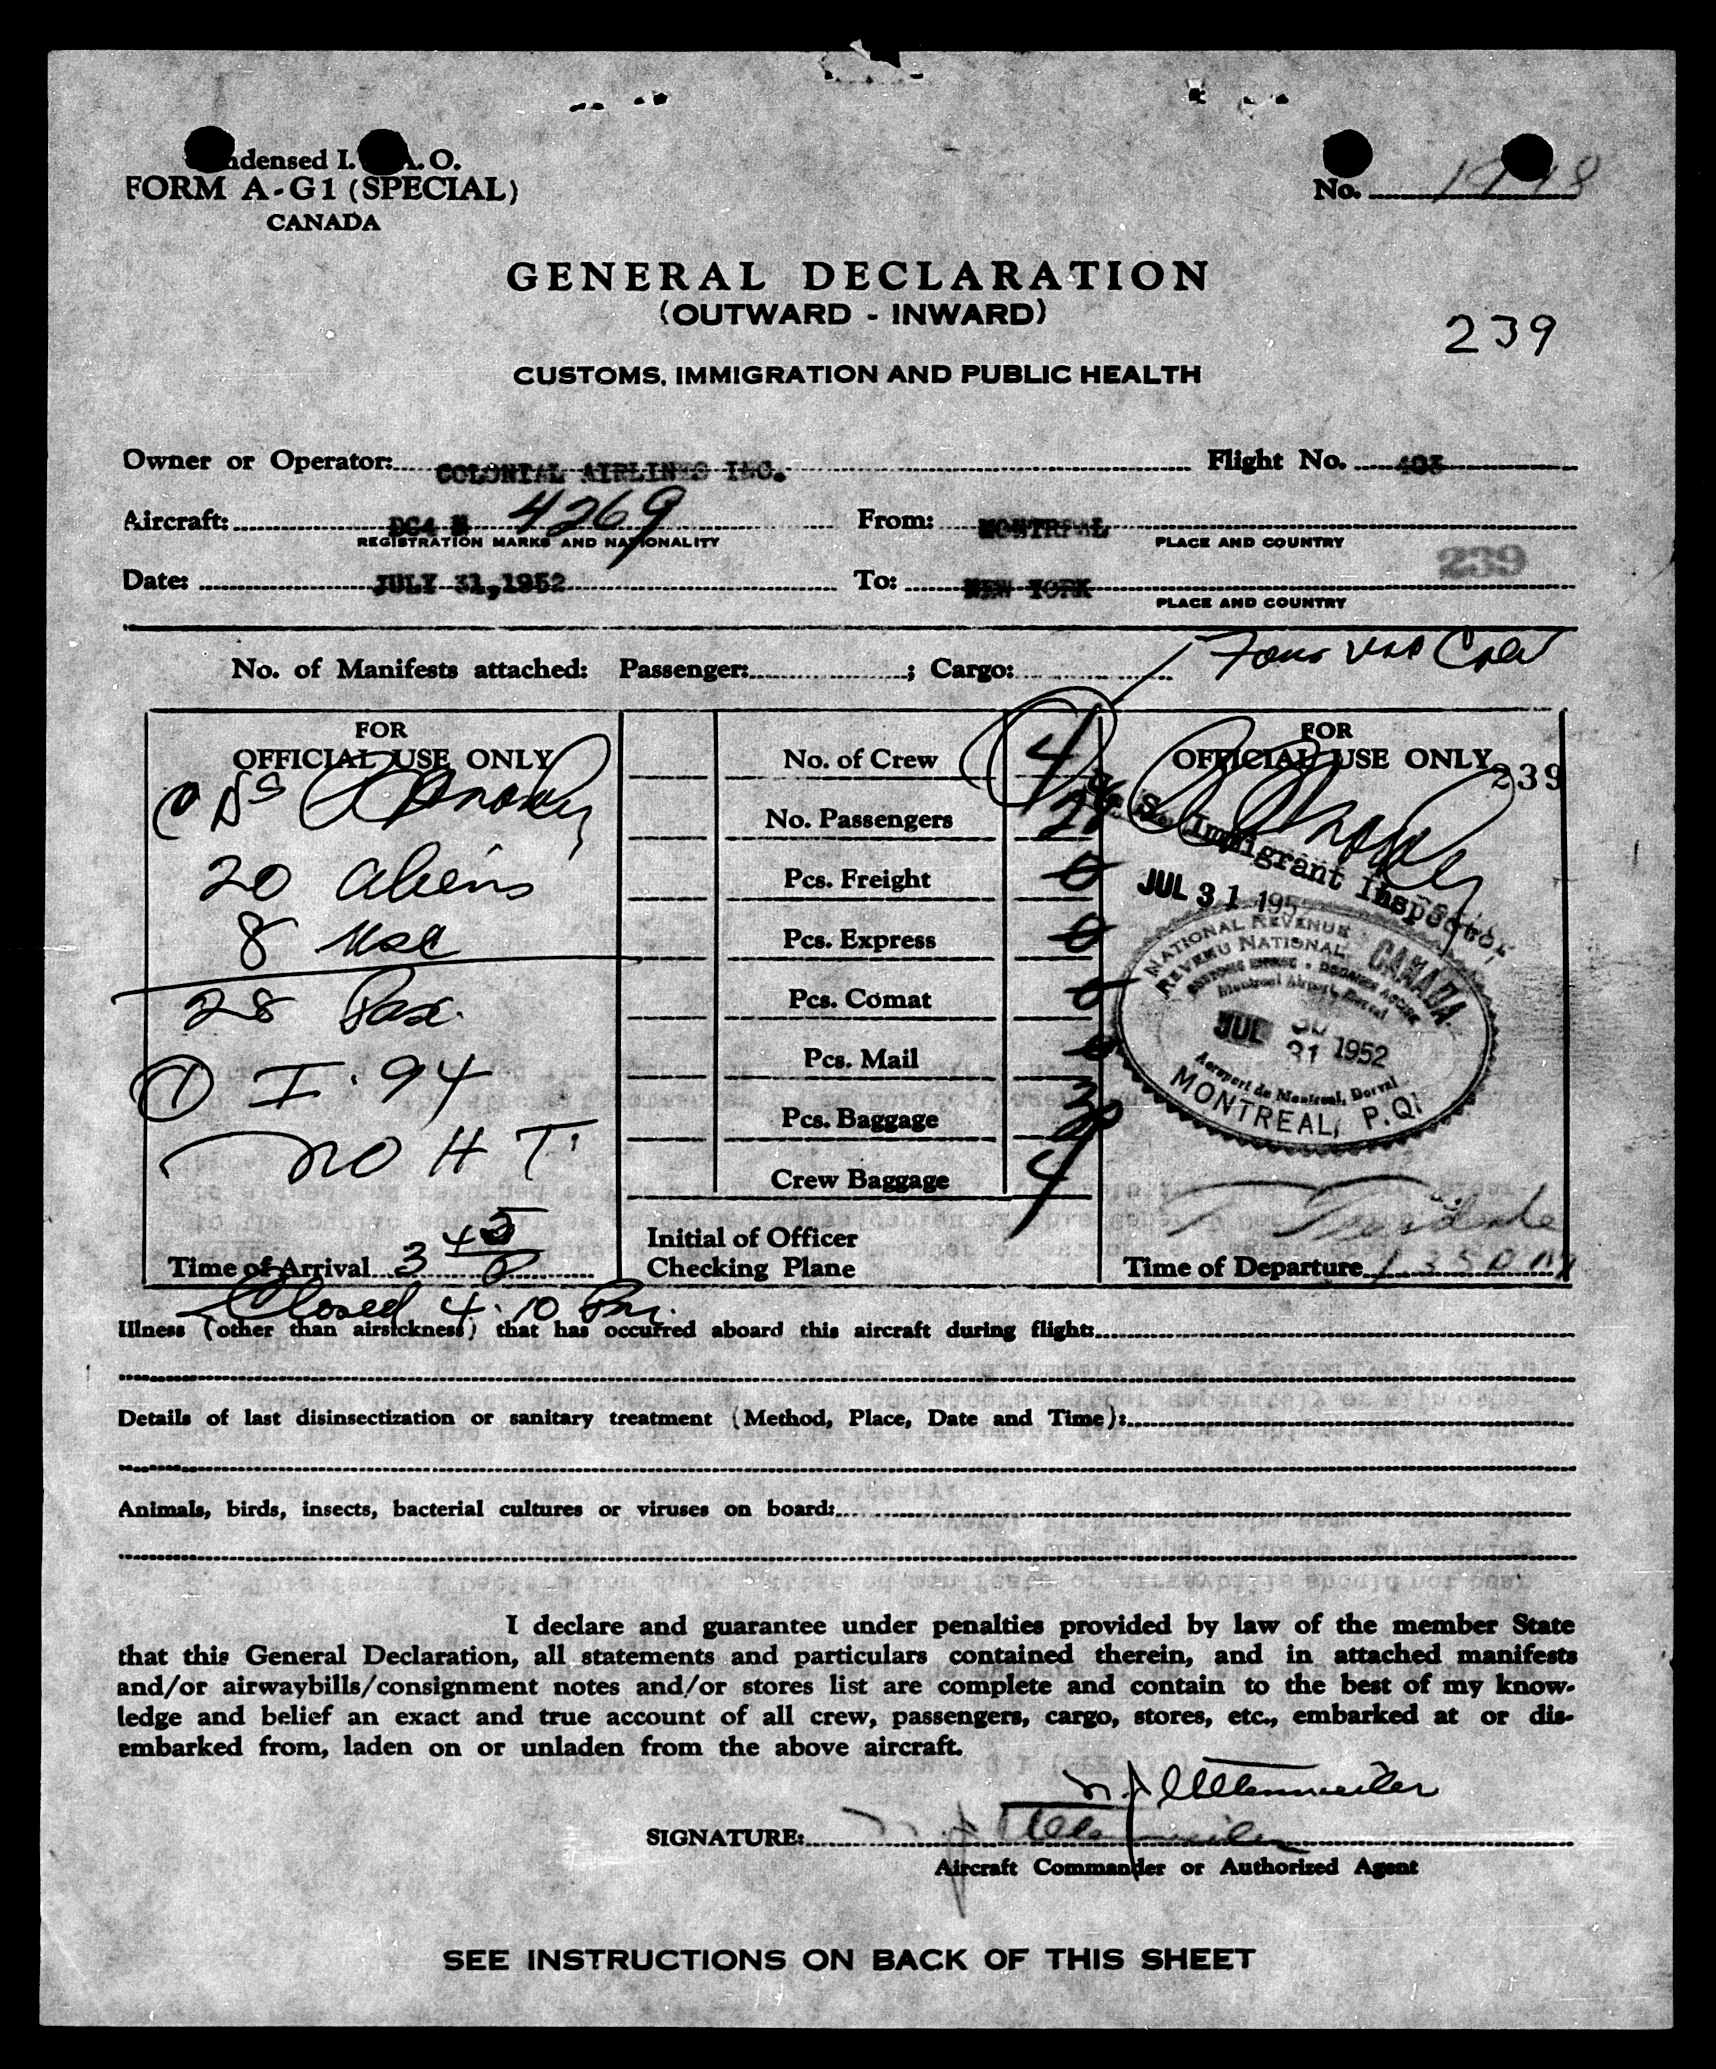 ndensed I. A. O.
FORM A-G1 (SPECIAL)
CANADA
No.
GENERAL DECLARATION
(OUTWARD - INWARD)
239
CUSTOMS, IMMIGRATION AND PUBLIC HEALTH
Owner or Operator: COLONIAL AIRLINES INC. Flight No. 403
Aircraft: DC4 N 4269 From: MONTREAL
REGISTRATION MARKS AND NATIONALITY PLACE AND COUNTRY
239
Date: JULY 31,1952 To: NEW YORK
PLACE AND COUNTRY
No. of Manifests attached: Passenger: ; Cargo: Four USA Crew
FOR
OFFICIAL USE ONLY
20 aliens
8 usc
28 Pax.
1 I. 94
no H T.
Time of Arrival 3 45 P
No. of Crew 4
No. Passengers 28
Pcs. Freight 0
Pcs. Express 0
Pcs. Comat 0
Pcs. Mail 0
Pcs. Baggage 30
Crew Baggage 4
Initial of Officer
Checking Plane
FOR
OFFICIAL USE ONLY
239
U. S. Immigrant Inspector
JUL 31 195
NATIONAL REVENUE CANADA
REVENU NATIONAL
Montreal Airport, Dorval
JUL 31 1952
Aeroport de Montreal, Dorval
MONTREAL, P.Q.
Time of Departure 1 35 P M
Closed 4.10 Pm.
Illness (other than airsickness) that has occurred aboard this aircraft during flight:
Details of last disinsectization or sanitary treatment (Method, Place, Date and Time):
Animals, birds, insects, bacterial cultures or viruses on board:
I declare and guarantee under penalties provided by law of the member State
that this General Declaration, all statements and particulars contained therein, and in attached manifests
and/or airwaybills/consignment notes and/or stores list are complete and contain to the best of my know-
ledge and belief an exact and true account of all crew, passengers, cargo, stores, etc., embarked at or dis-
embarked from, laden on or unladen from the above aircraft.
SIGNATURE:
Aircraft Commander or Authorized Agent
SEE INSTRUCTIONS ON BACK OF THIS SHEET